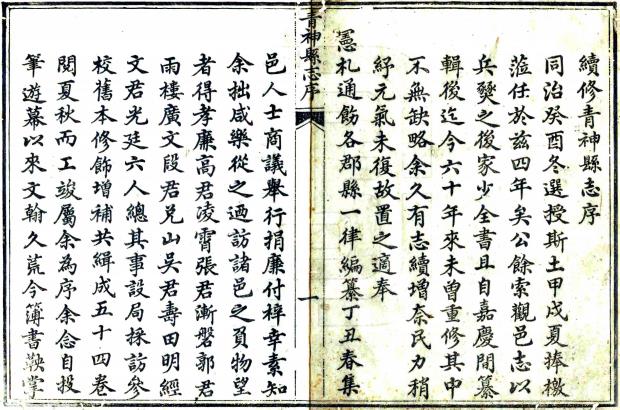 續修青神縣志序
同治癸酉冬選授斯土甲戌夏捧檄
蒞任於兹四年矣公餘索觀邑志以
兵燹之後家少全書且自嘉慶間纂
輯後迄今六十年來未曾重修其中
不無缺略余久有志續增奈民力稍
紓元氣未復故置之適奉
憲札通飭各郡縣一律編纂丁丑春集
青神縣志序
一
邑人士商議舉行捐廉付梓幸素知
余拙咸樂從之迺訪諸邑之負物望
者得孝廉高君凌霄張君漸磐郭君
雨樓廣文段君兑山吳君壽田明經
文君光廷六人總其事設局採訪參
校舊本修飾增補共緝成五十四卷
閱夏秋而工竣屬余為序余念自投
筆遊幕以來文翰久荒今簿書鞅掌